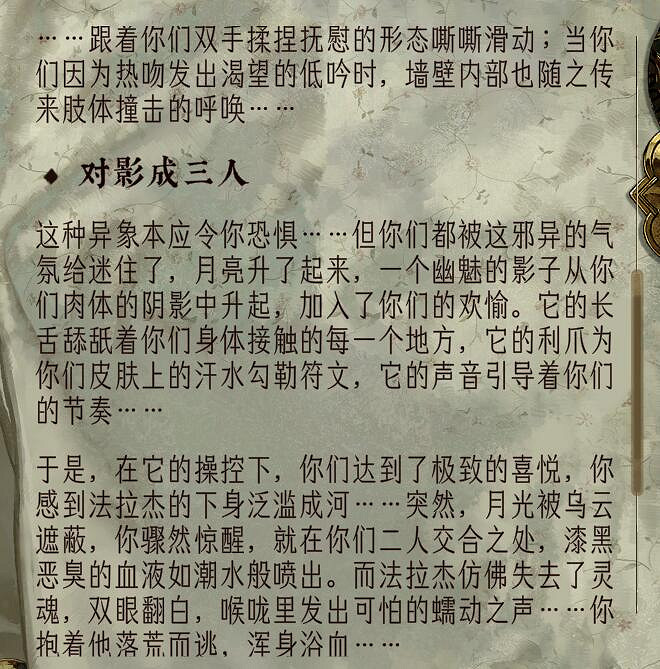 ……跟着你们双手揉捏抚慰的形态嘶嘶滑动；当你
们因为热吻发出渴望的低吟时，墙壁内部也随之传
来肢体撞击的呼唤……
◆ 对影成三人
这种异象本应令你恐惧……但你们都被这邪异的气
氛给迷住了，月亮升了起来，一个幽魅的影子从你
们肉体的阴影中升起，加入了你们的欢愉。它的长
舌舔舐着你们身体接触的每一个地方，它的利爪为
你们皮肤上的汗水勾勒符文，它的声音引导着你们
的节奏……
于是，在它的操控下，你们达到了极致的喜悦，你
感到法拉杰的下身泛滥成河……突然，月光被乌云
遮蔽，你骤然惊醒，就在你们二人交合之处，漆黑
恶臭的血液如潮水般喷出。而法拉杰仿佛失去了灵
魂，双眼翻白，喉咙里发出可怕的蠕动之声……你
抱着他落荒而逃，浑身浴血……